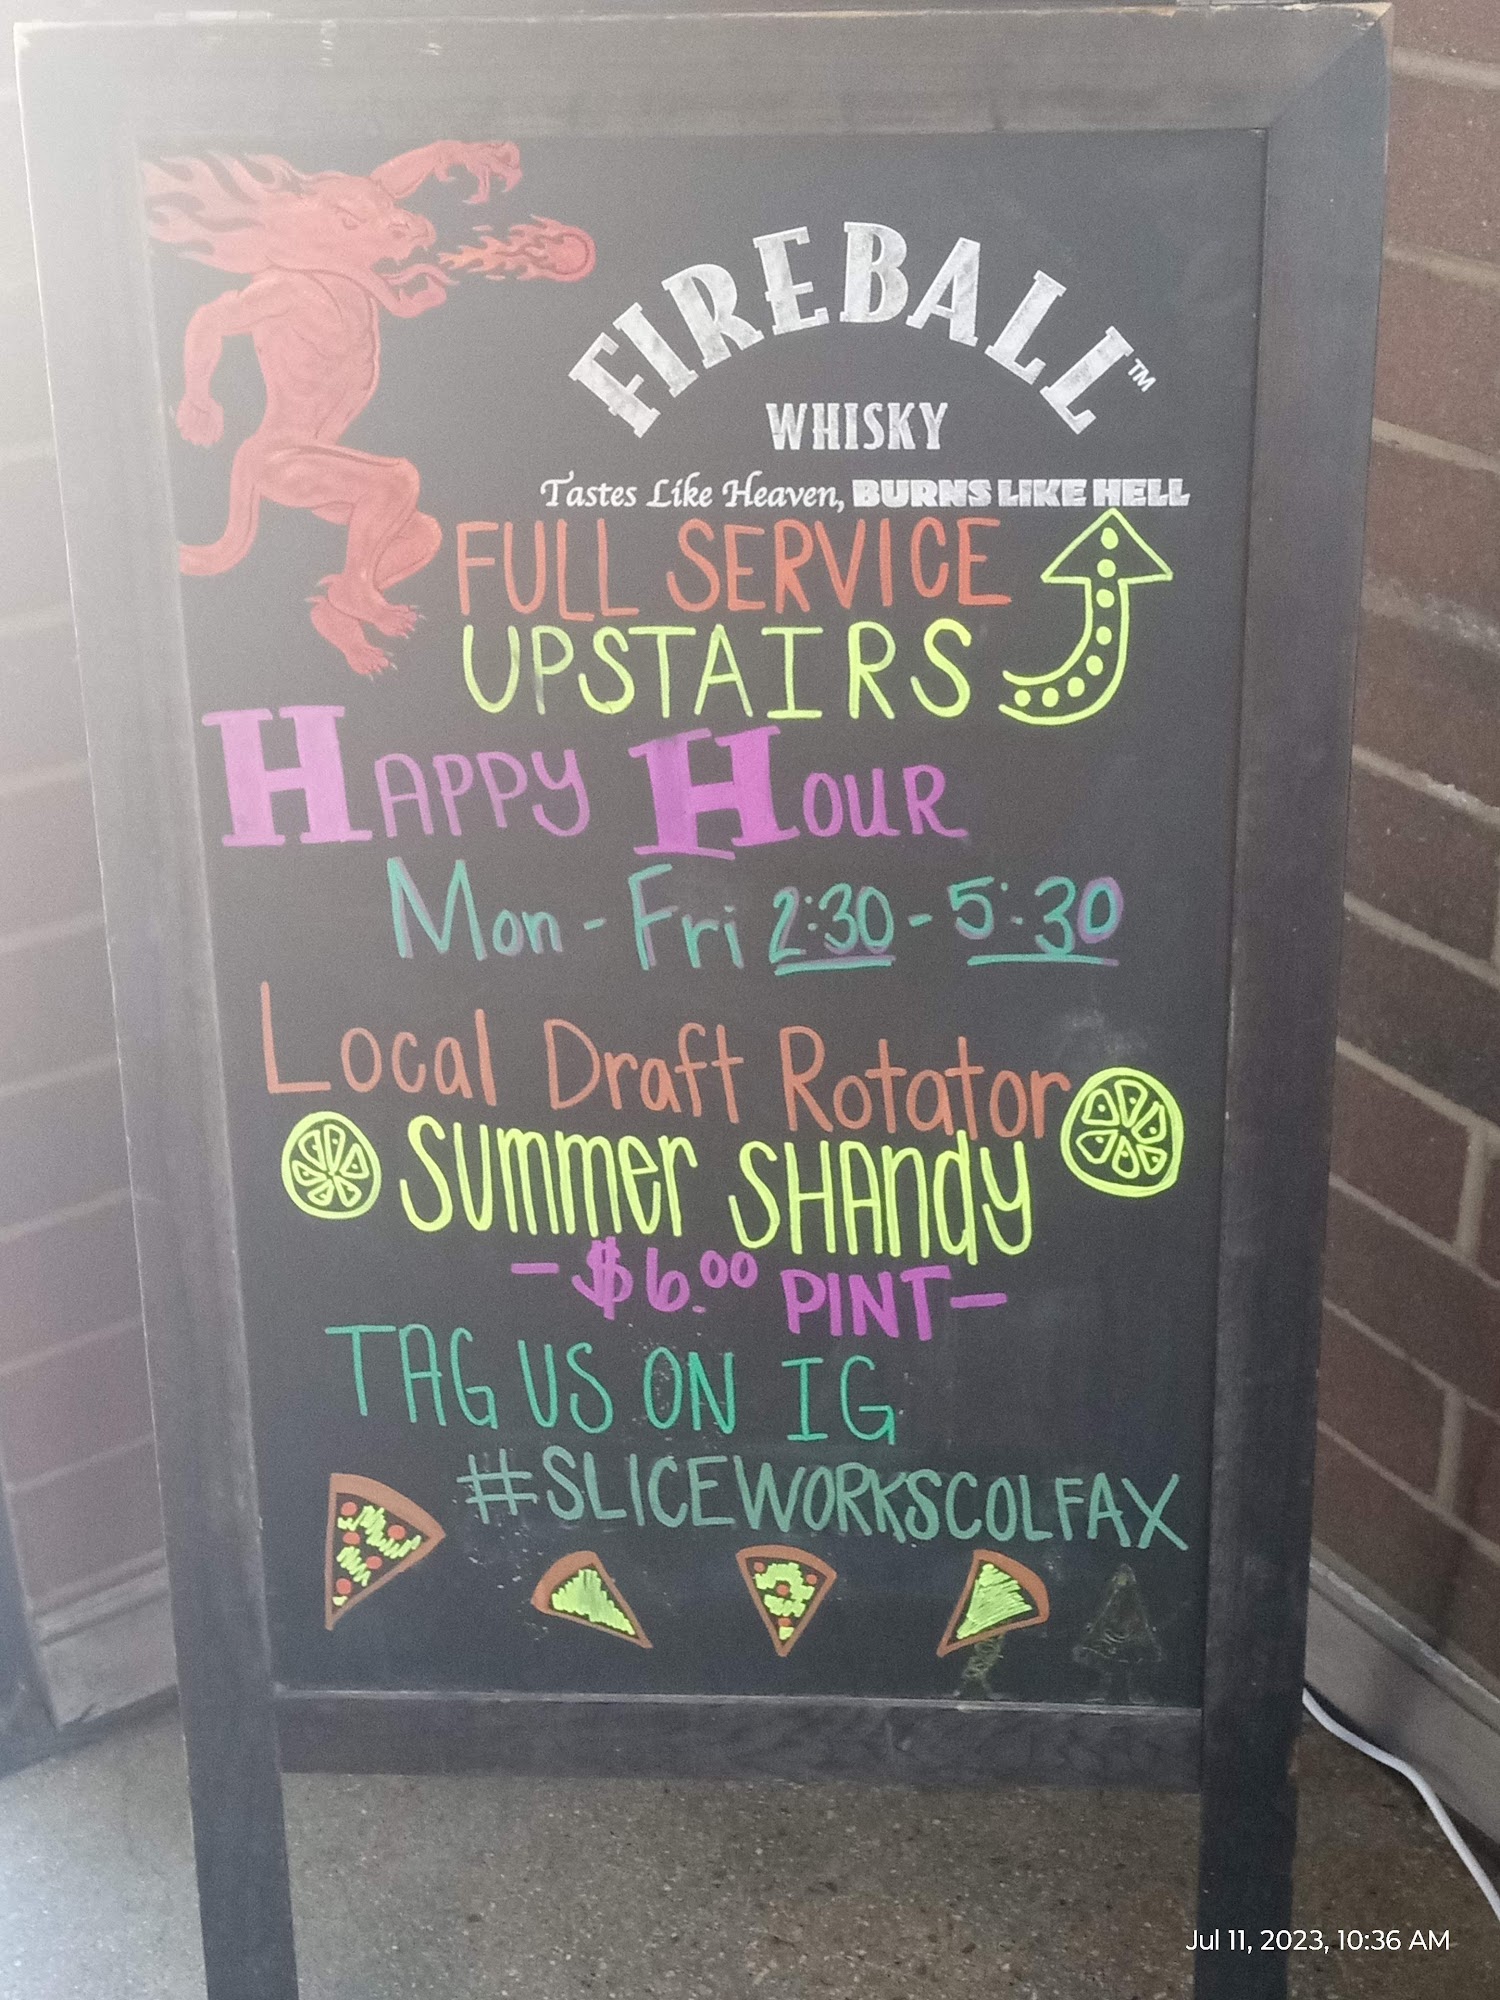 FIREBALL™
WHISKY
Tastes Like Heaven, BURNS LIKE HELL
FULL SERVICE
UPSTAIRS
HAPPY HOUR
Mon - Fri 2:30 - 5:30
Local Draft Rotator
Summer SHAndy
- $6.00 PINT -
TAG US ON IG
#SLICEWORKSCOLFAX
Jul 11, 2023, 10:36 AM